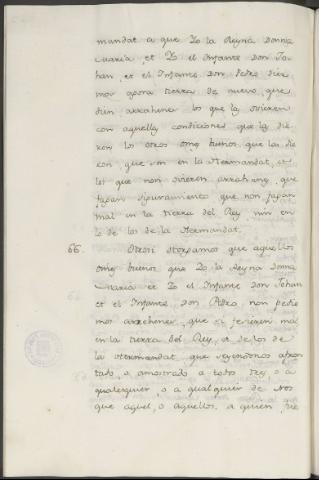 mandat a que Yo la Reyna Donna
Maria, et Yo el Infante Don Jo-
han, et el Infante Don Pedro die-
mos agora tierra de nuevo, que
den arrahenes los que la ovieren
con aquellas condiciones que la die-
ron los otros omes buenos, que las die-
ron que son en la Hermandat, a
los que non dieren arrahenes, que
fagan seguramiento que non fagan
mal en la tierra del Rey nin en
lo de los de la Hermandat.
66. Otrosi otorgamos que aquellos
omes buenos que Yo la Reyna Donna
Maria et Yo el Infante Don Johan
et el Infante Don Pedro, non pedie-
mos arrehenes, que si ficieren mal
en la tierra del Rey, o de los de
la Hermandat, que seyendonos afron-
tado, o amostrado a todos tres, o a
qualesquier, o a qualquier de Nos
que aquel, o aquellos, a quien, fue